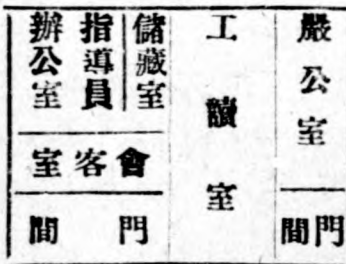 嚴公室
門間
工讀室
儲藏室
指導員
辦公室
會客室
門間